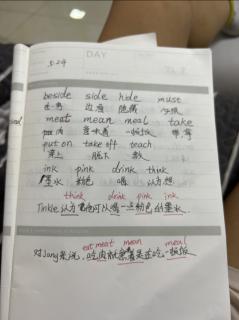 5.29
DAY
beside side hide must
在旁 边 边 隐藏 必须
meat mean meal take
肉 意味着 一顿饭 带
put on take off teach
穿上 脱下 教
ink pink drink think
墨水 粉色 喝 认为想
think drink pink ink
Tinkle 认为他可以喝一点粉色的墨水.
eat meat mean meal
对Jang来说, 吃肉就意着是在吃一顿饭